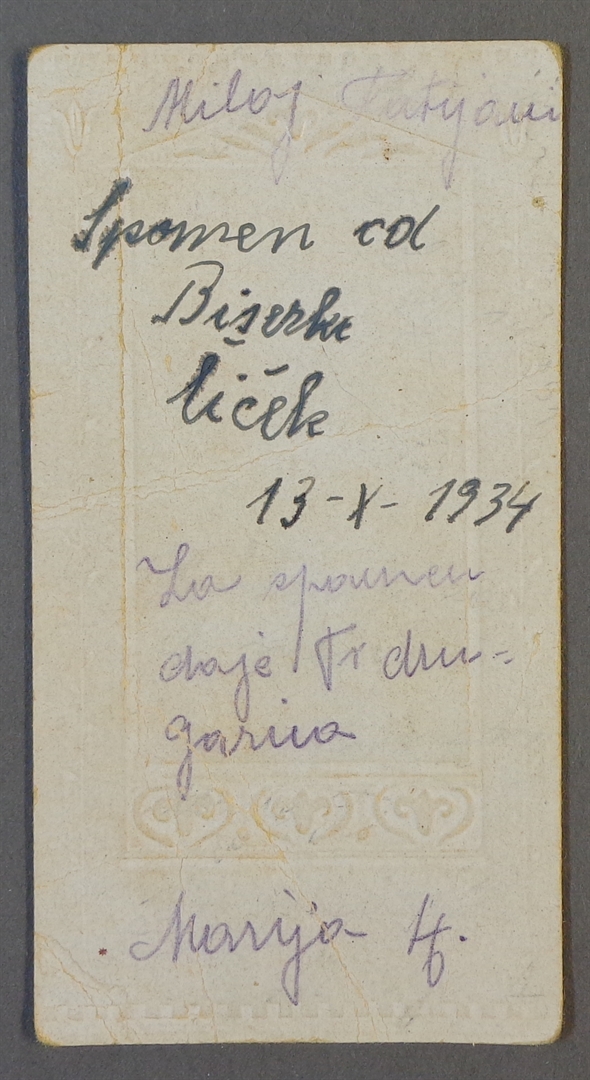 Miloj Tatijani
Spomen od
Biserke
Ličék
13-X-1934
Za spomen
daje Ti dru-
garica
Marija H.